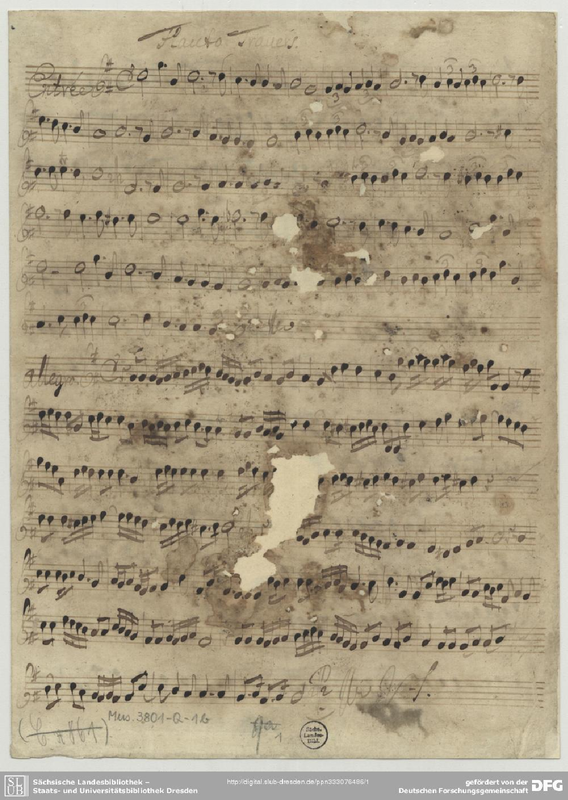 Flauto Travers.
Entrée
allegro
Mus. 3801-Q-1b
1
Sächs.
Landes-
Bibl.
Sächsische Landesbibliothek –
Staats- und Universitätsbibliothek Dresden
http://digital.slub-dresden.de/ppn333076486/1
gefördert von der
Deutschen Forschungsgemeinschaft
DFG